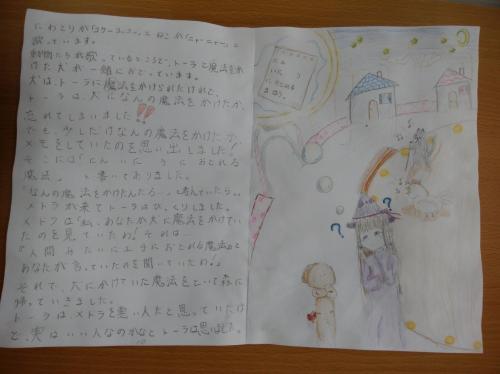 にわとりが「コケーコッコー」とねこが「ニャーニャー」と
歌っています。
動物たちが歌っているところで、トーラと魔法をか
けた犬が一緒におどっています。
犬は、トーラに魔法をかけられたけれど、
トーラは、犬になんの魔法をかけたか、
忘れてしまいました!!
でも、少しだけなんの魔法をかけたか
メモをしていたのを思い出しました!
そこには「にん いに うにおどれる
魔法。」と書いてありました。
「なんの魔法をかけたんだろ…。」考えていたら。。
メドラが来てトーラはびっくりしました。
メドラは「私、あなたが犬に魔法をかけてい
たのを見ていたわ!それは…
『人間みたいに上手におどれる魔法』と
あなたが言っていたのを聞いていたわ!」
それで、犬にかけていた魔法をといて森に
帰っていきました。
トーラは、メドラを悪い人だと思っていたけ
ど、実はいい人なのかなとトーラは思いました。
にん
いに う
におどれる
まほう。
? ?